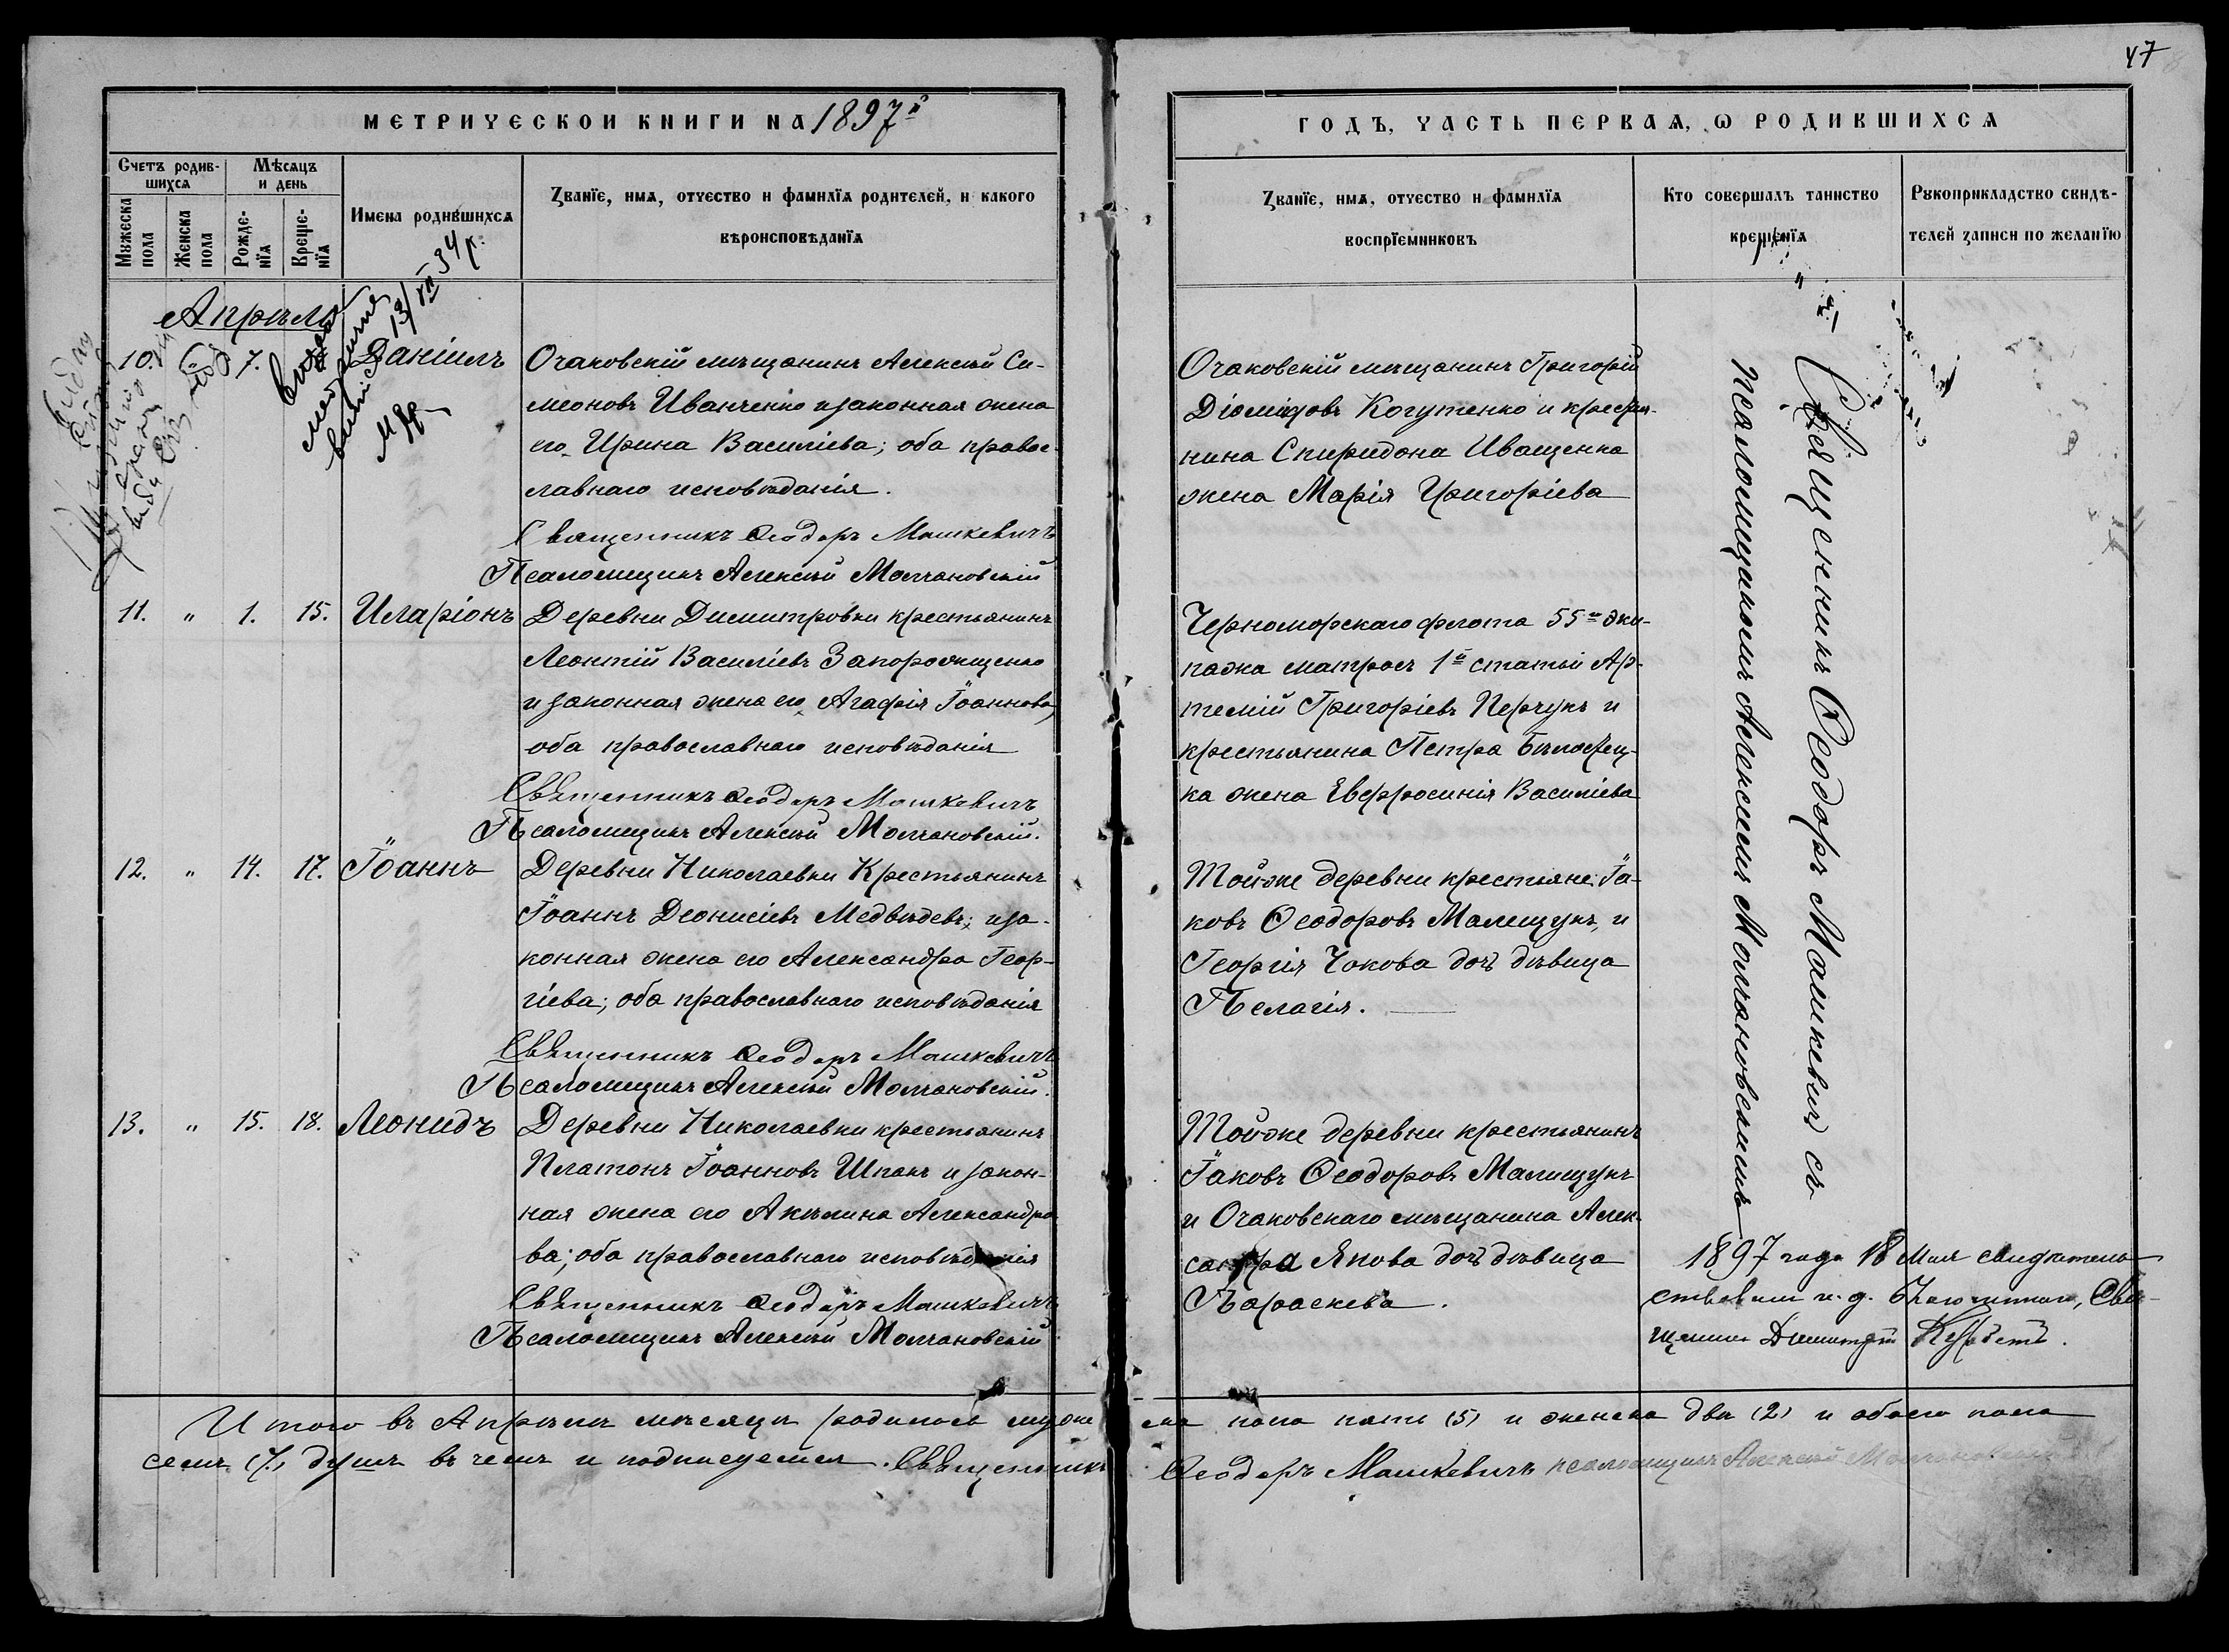 47
МЕТРИЧЕСКОЙ КНИГИ НА 1897й
ГОДЪ, ЧАСТЬ ПЕРВАЯ, Ѡ РОДИВШИХСЯ
Счетъ родив-
шихся
Мѣсяцъ
и день
Мужеска
пола
Женска
пола
Рожде-
нїя
Креще-
нїя
Имена родившихся
Званїе, имя, отчество и фамилїя родителей, и какого
вѣроисповѣданїя
Званїе, имя, отчество и фамилїя
воспрїемниковъ
Кто совершалъ таинство
крещенїя
Рукоприкладство свидѣ-
телей записи по желанїю
Апрѣль
13/VII 34 р.
10.
7.
Даніилъ
Очаковскій мѣщанинъ Алексѣй Си-
меоновъ Иванченко и законная жена
его Ирина Василіева; оба правос-
лавнаго исповѣданія.
Священникъ Ѳеодоръ Машкевичъ
Псаломщикъ Алексѣй Молчановскій
Очаковскій мѣщанинъ Григорій
Діомидовъ Когутенко и крестья-
нина Спиридона Иващенка
жена Марія Григоріева
11. " 1. 15. Иларіонъ
Деревни Димитровки крестьянинъ
Леонтій Василіевъ Запорожщенко
и законная жена его Агафія Іоаннова,
оба православнаго исповѣданія
Священникъ Ѳеодоръ Машкевичъ
Псаломщикъ Алексѣй Молчановскій.
Черноморскаго флота 55го эки-
пажа матросъ 1й статьи Ар-
темій Григоріевъ Перчукъ и
крестьянина Петра Бѣлорец-
ка жена Евфросинія Василіева
12. " 14. 17. Іоаннъ
Деревни Николаевки Крестьянинъ
Іоаннъ Діонисіевъ Медвѣдевъ; и за-
конная жена его Александра Геор-
гіева; оба православнаго исповѣданія
Священникъ Ѳеодоръ Машкевичъ
Псаломщикъ Алексѣй Молчановскій.
Той-же деревни крестьяне: Іа-
ковъ Ѳеодоровъ Малищукъ, и
Георгія Чокова дочь дѣвица
Пелагія.
13. " 15. 18. Леонидъ
Деревни Николаевки крестьянинъ
Платонъ Іоанновъ Шпакъ и закон-
ная жена его Акилина Александро-
ва; оба православнаго исповѣданія
Священникъ Ѳеодоръ Машкевичъ
Псаломщикъ Алексѣй Молчановскій
Той-же деревни крестьянинъ
Іаковъ Ѳеодоровъ Малищукъ
и Очаковскаго мѣщанина Алек-
сандра Якова дочь дѣвица
Параскева.
Священникъ Ѳеодоръ Машкевичъ съ
Псаломщикомъ Алексѣемъ Молчановскимъ
1897 года 18 Мая свидѣтель-
ствовалъ и. д. Благочиннаго, Свя-
щенникъ Димитрій
Итого въ Апрѣлѣ мѣсяцѣ родилось мужеска пола пять (5) и женска два (2) и обоего пола
семь (7) душъ въ чемъ и подписуемся. Священникъ Ѳеодоръ Машкевичъ псаломщикъ Алексѣй Молчановскій